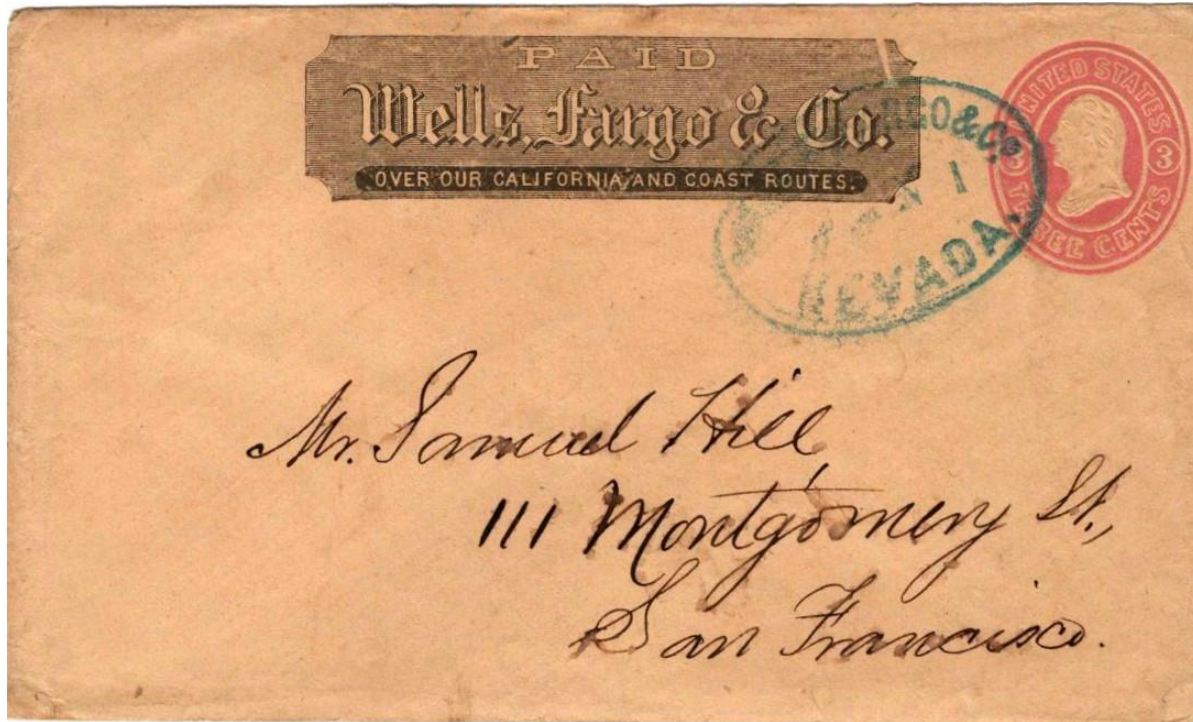 PAID
Wells, Fargo & Co.
OVER OUR CALIFORNIA AND COAST ROUTES.
FARGO & Co
1
NEVADA.
UNITED STATES
3 3
THREE CENTS
Mr. Samuel Hill,
111 Montgomery St.,
San Francisco.